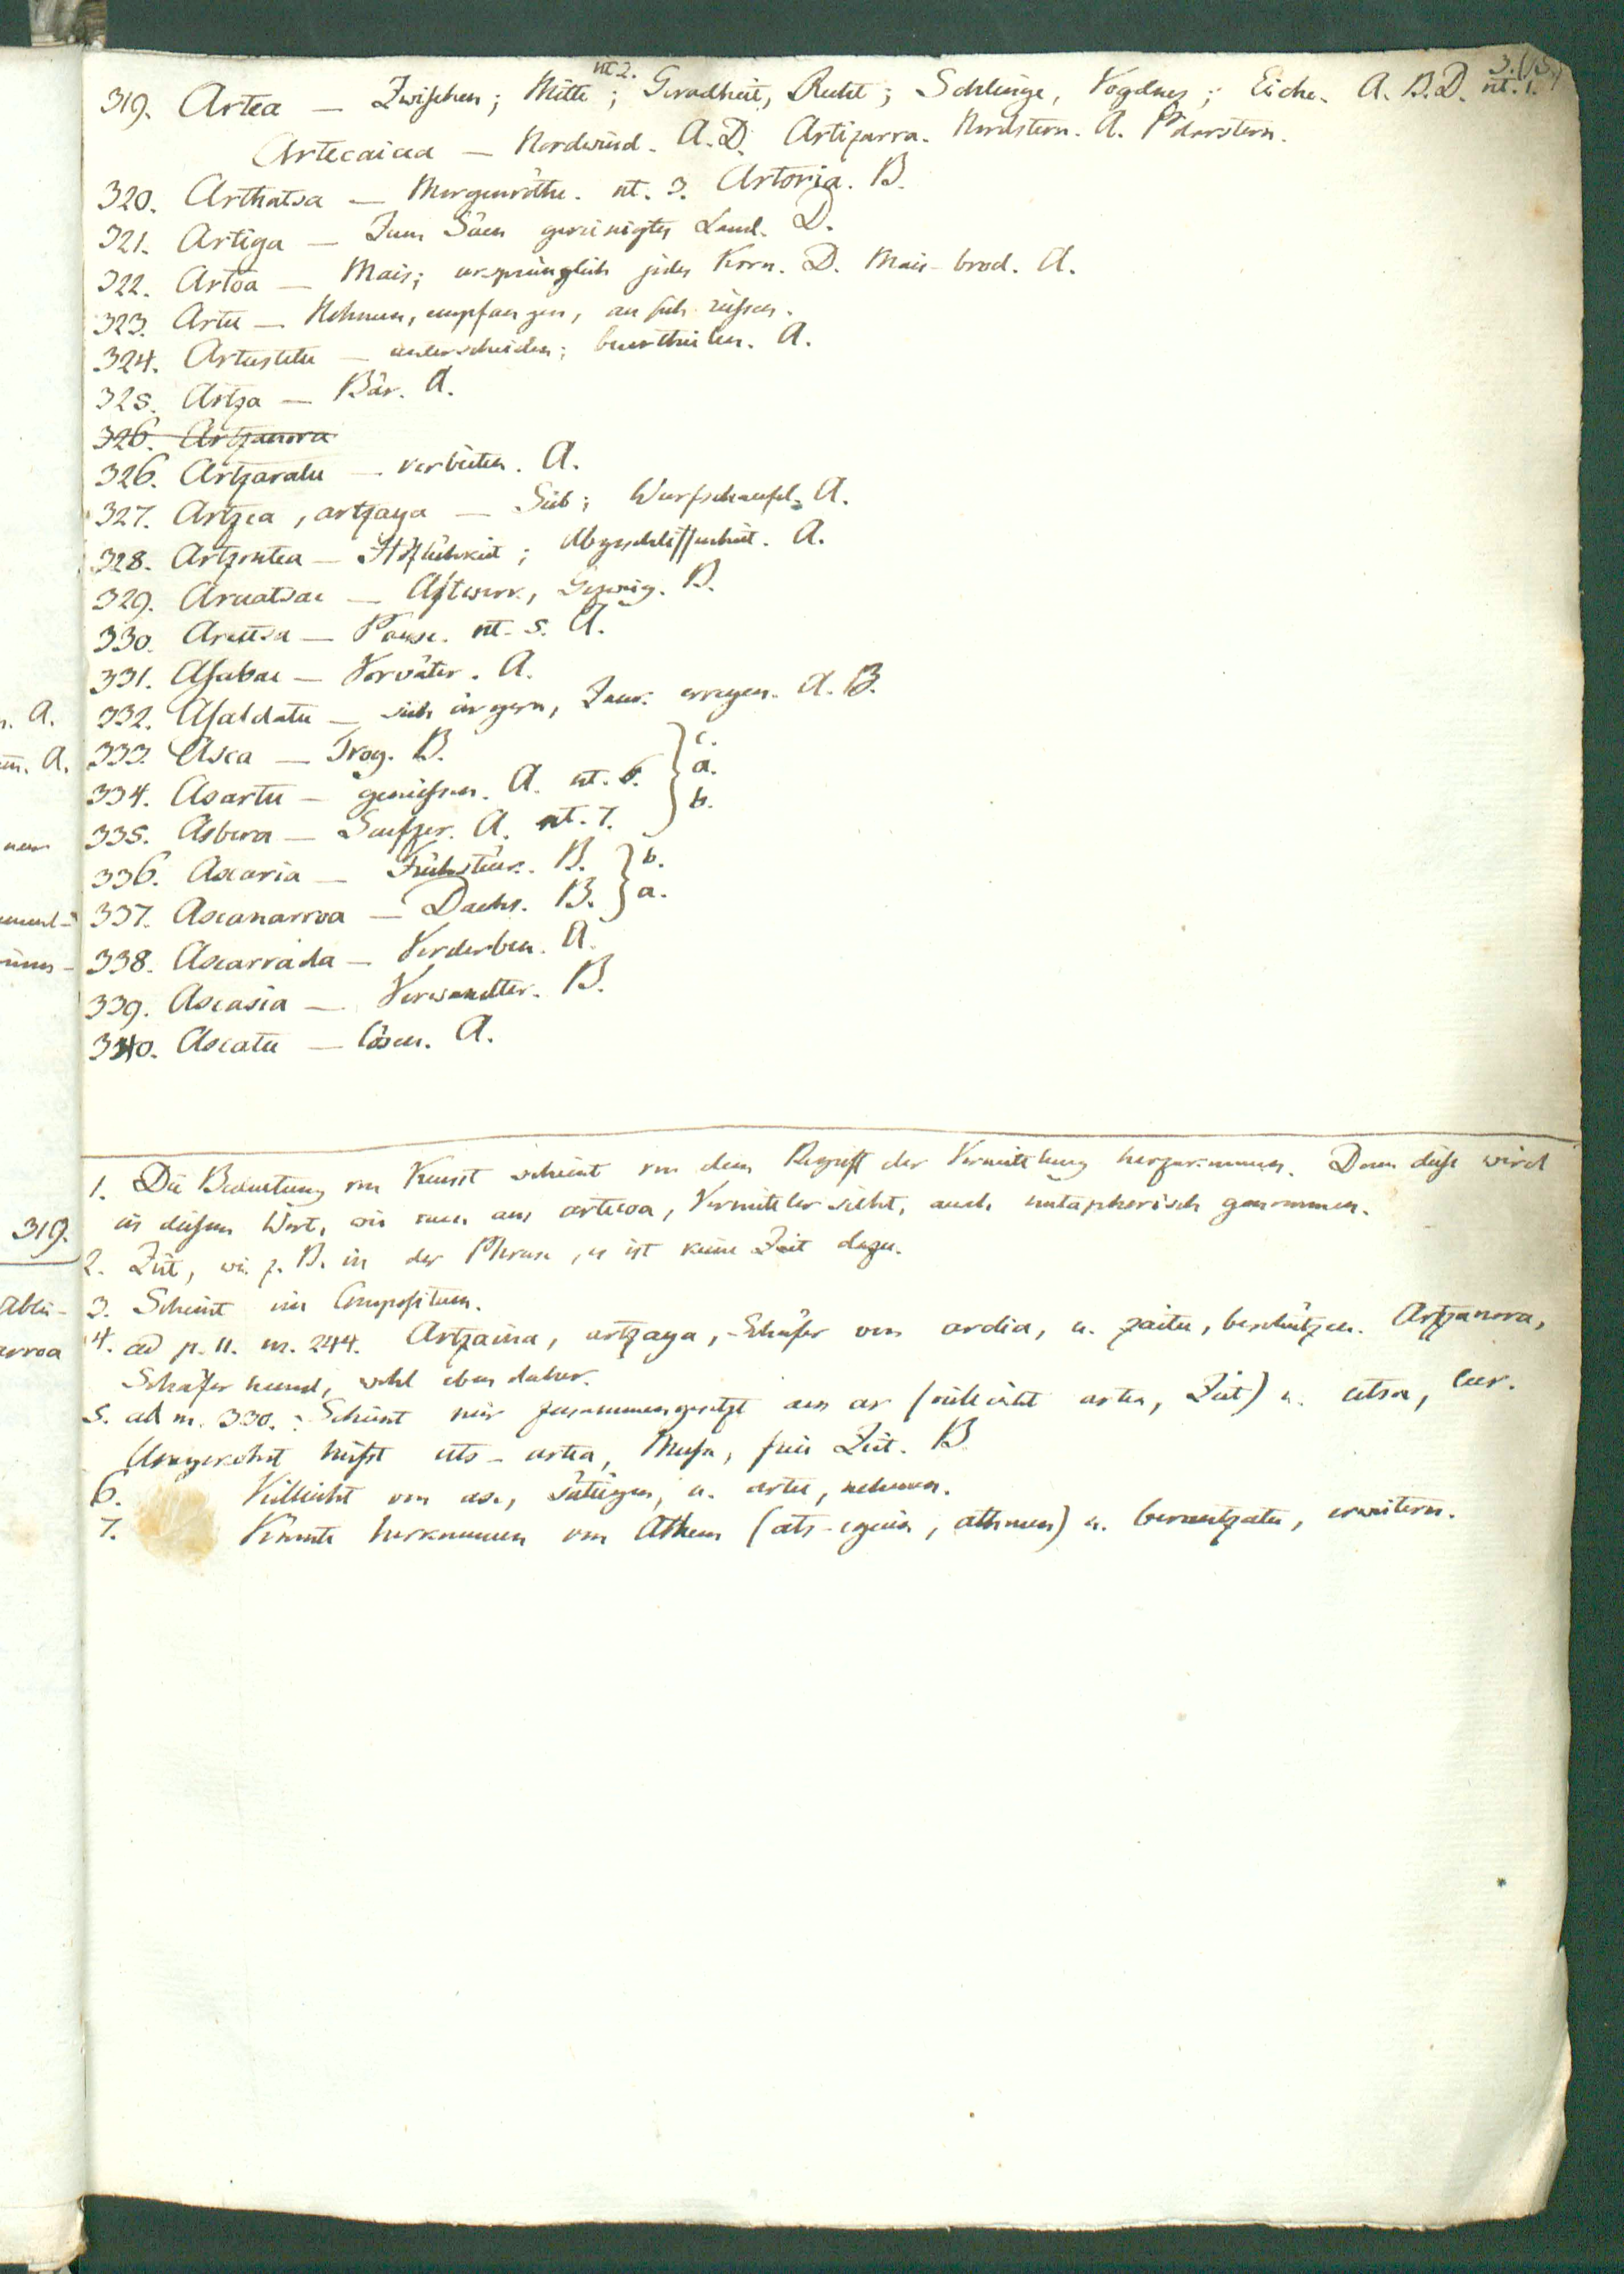 3. (15.)
nt. 2.
319. Artea — Zwischen; Mitte; Geradheit, Recht; Schlinge, Eiche. A. B. D. nt. 1.
Artecaicea — Nordwind. A. D. Artizarra. Nordstern. A. Polarstern.
320. Arthatsa — Morgenröthe. nt. 3. Artoria. B.
321. Artiga — Zum Säen gereinigtes Land. D.
322. Artoa — Mais; ursprünglich jedes Korn. D. Mais-brod. A.
323. Artu — Nehmen, empfangen, an sich reissen.
324. Artustetu — unterscheiden; beurtheilen. A.
325. Artza — Bär. A.
326. Artzanora
326. Artzaratu — verbieten. A.
327. Artzea, artzaya — Sieb; Wurfschaufel. A.
328. Artzontea — Höflichkeit; Abgeschliffenheit. A.
329. Aruatsac — Astwerk, Gezweig. B.
330. Arutsa — Pause. nt. 5. A.
331. Asabac — Vorväter. A.
332. Asaldatu — sich ärgern, Zank erregen. A. B.
333. Asca — Trog. B. c.
334. Asartu — geniessen. A. nt. 6. a.
335. Asbera — Seufzer. A. nt. 7. b.
336. Ascaria — Frühstück. B. b.
337. Ascanarroa — Dachs. B. a.
338. Ascarrada — Verderben. A.
339. Ascasia — Verwandter. B.
340. Ascatu — lösen. A.
1. Die Bedeutung von Kunst scheint von dem Begriff der Vermittelung herzukommen. Denn diese wird
in diesem Wort, wie man aus artecoa, Vermittler sieht, auch metaphorisch genommen.
2. Zeit, wie z. B. in der Phrase, es ist keine Zeit dazu.
3. Scheint ein Compositum.
4. ad p. 11. nr. 244. Artzaina, artzaya, Schäfer von ardia, u. zaitu, beschützen. Artzanora,
Schäferhund, wohl eben daher.
5. ad nr. 330. : Scheint mir zusammengesetzt aus ar (vielleicht artea, Zeit) u. utsa, leer.
Umgekehrt heisst uts-artea, Musse, freie Zeit. B.
6. Vielleicht von ase, sättigen, u. artu, nehmen.
7. Könnte herkommen von Athem (ats-eguin, athmen) u. berantzatu, erweitern.
n. A.
A.
319.
Ablei-
arroa